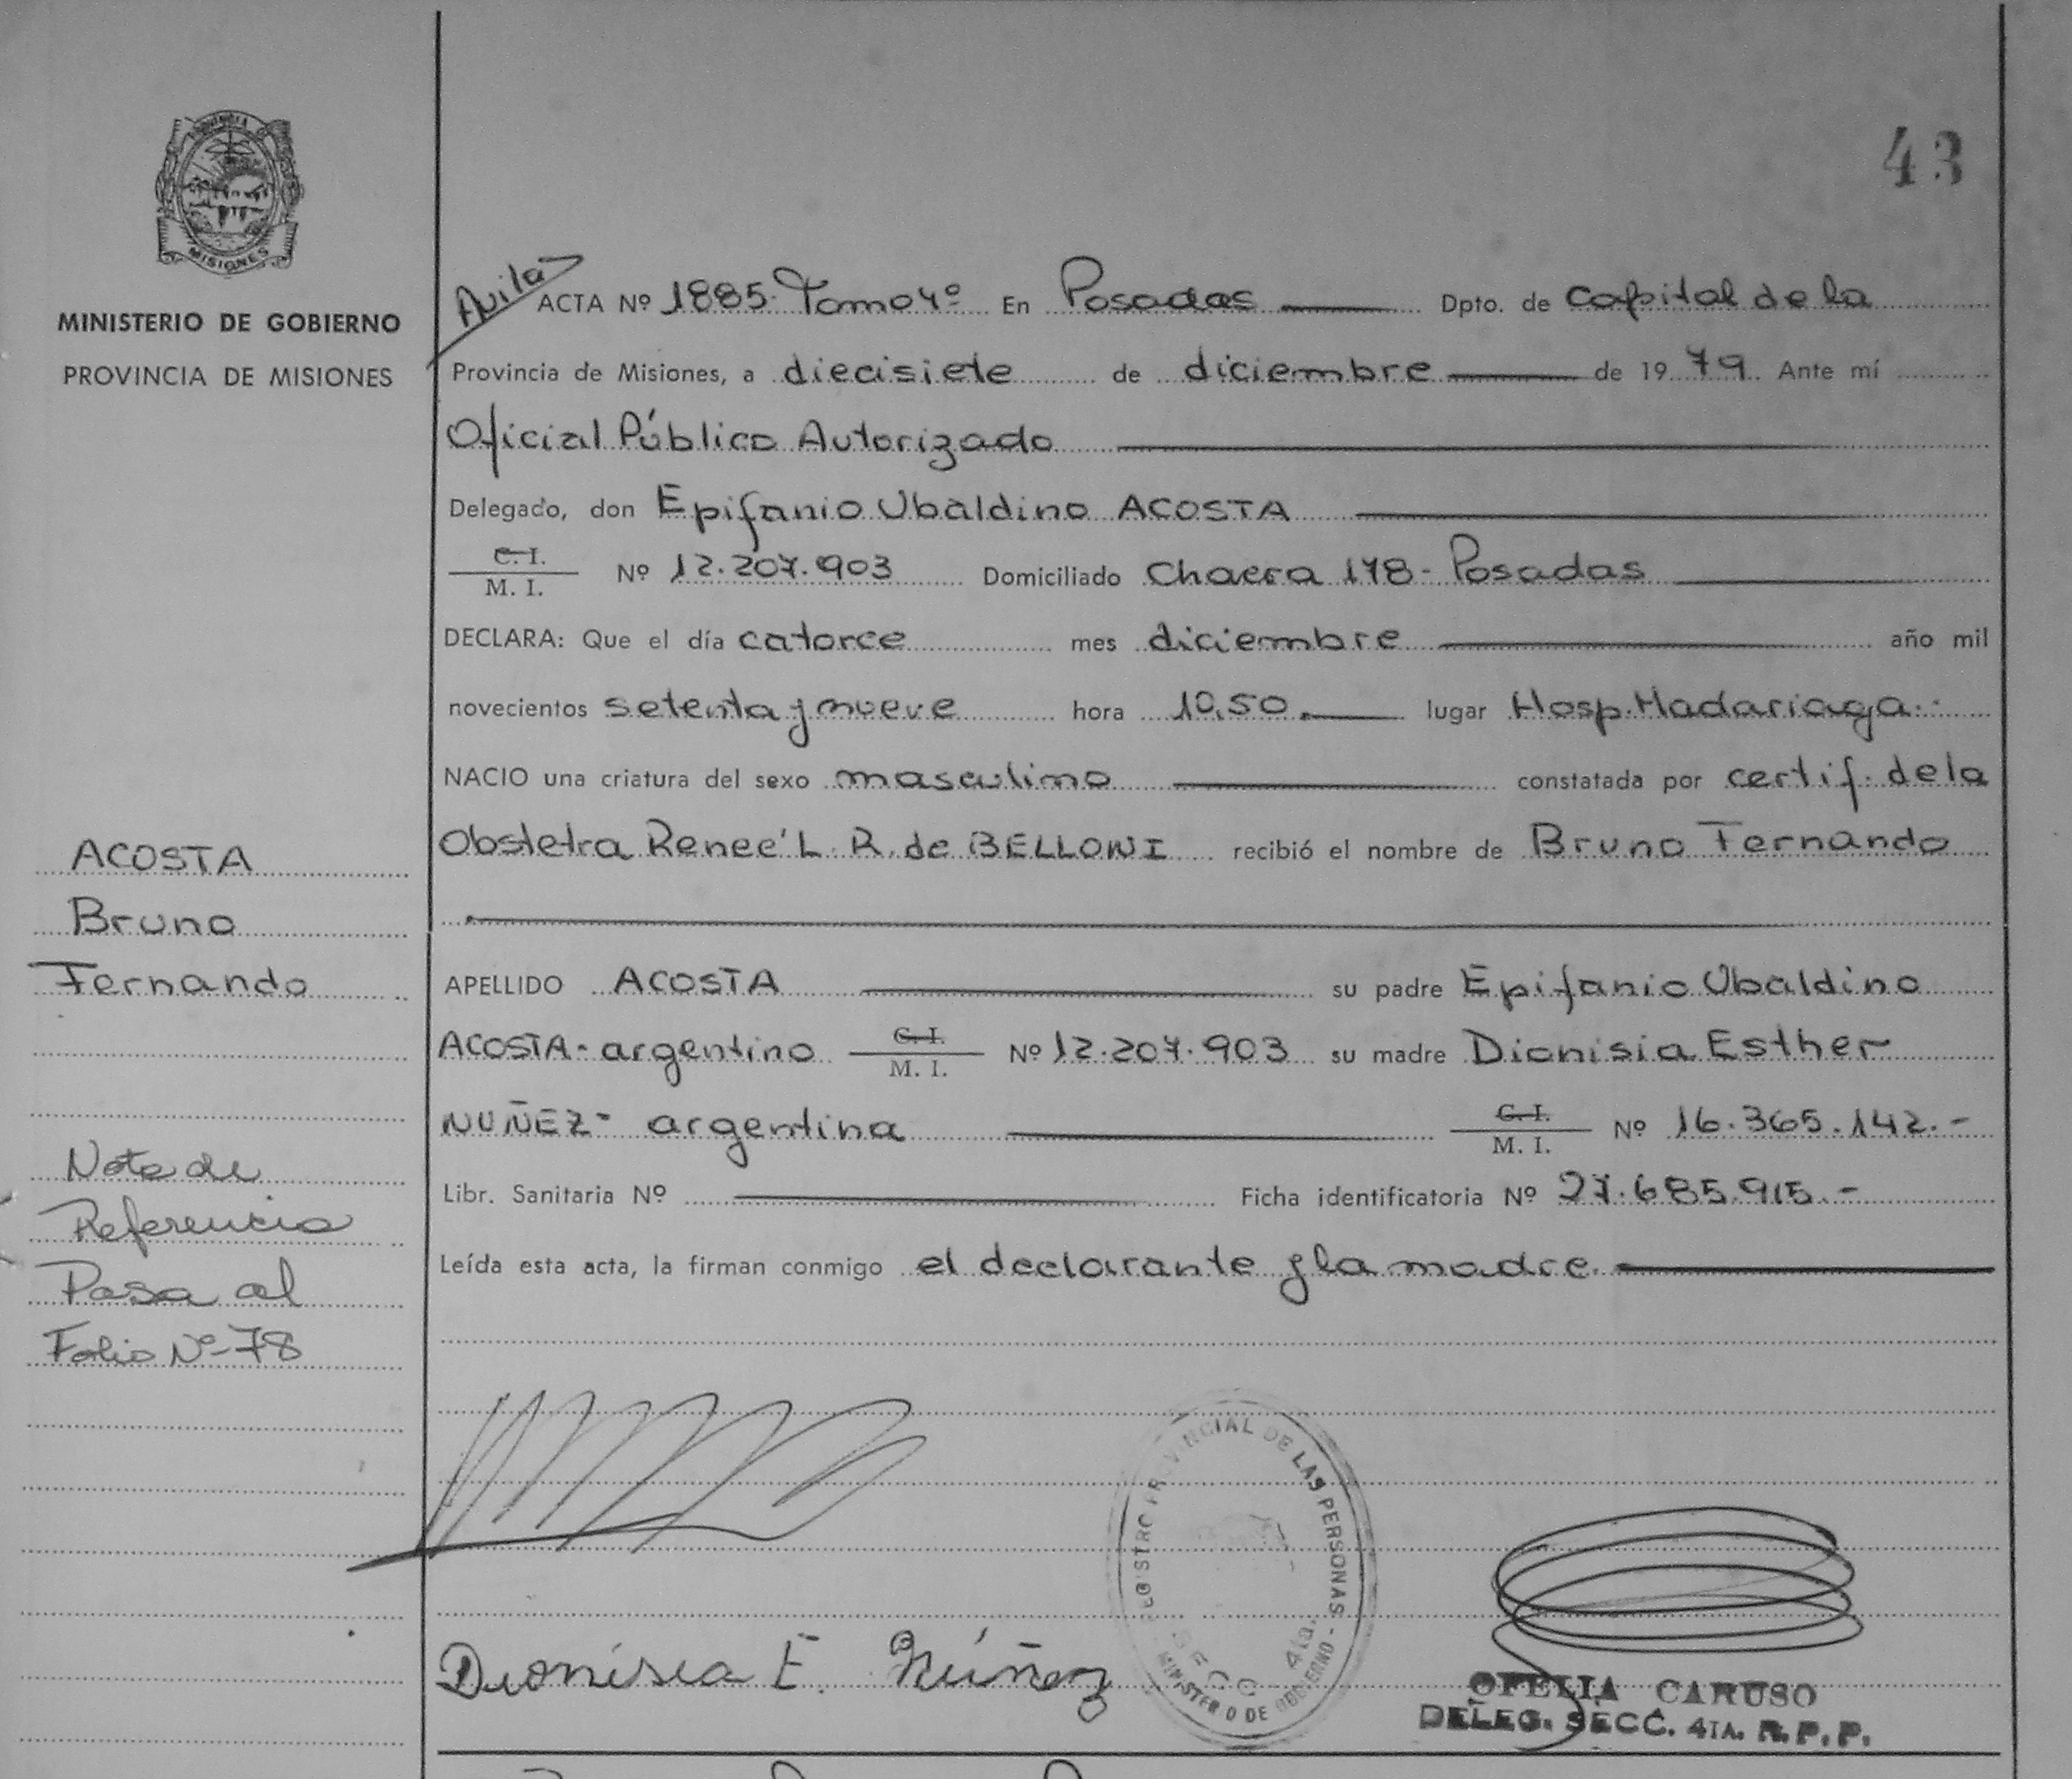 43
PROVINCIA
MISIONES
MINISTERIO DE GOBIERNO
PROVINCIA DE MISIONES
Avila
ACTA Nº 1885. Tomo 4º En Posadas Dpto. de Capital de la
Provincia de Misiones, a diecisiete de diciembre de 1979. Ante mí
Oficial Público Autorizado
Delegado, don Epifanio Ubaldino ACOSTA
C. I.
M. I. Nº 12.207.903 Domiciliado Chacra 178 - Posadas
DECLARA: Que el día catorce mes diciembre año mil
novecientos setenta y nueve hora 10,50. lugar Hosp. Madariaga.
NACIO una criatura del sexo masculino constatada por certif. de la
Obstetra Reneé L. R. de BELLONI recibió el nombre de Bruno Fernando
APELLIDO ACOSTA su padre Epifanio Ubaldino
ACOSTA - argentino C. I.
M. I. Nº 12.207.903 su madre Dionisia Esther
NUÑEZ - argentina C. I.
M. I. Nº 16.365.142.-
Libr. Sanitaria Nº Ficha identificatoria Nº 27.685.915.-
Leída esta acta, la firman conmigo el declarante y la madre.
ACOSTA
Bruno
Fernando
Nota de
Referencia
Pasa al
Folio Nº 78
Dionisia E. Núñez
REGISTRO PROVINCIAL DE LAS PERSONAS
SECC. 4ta.
MINISTERIO DE GOBIERNO -
OFELIA CARUSO
DELEG. SECC. 4TA. R. P. P.